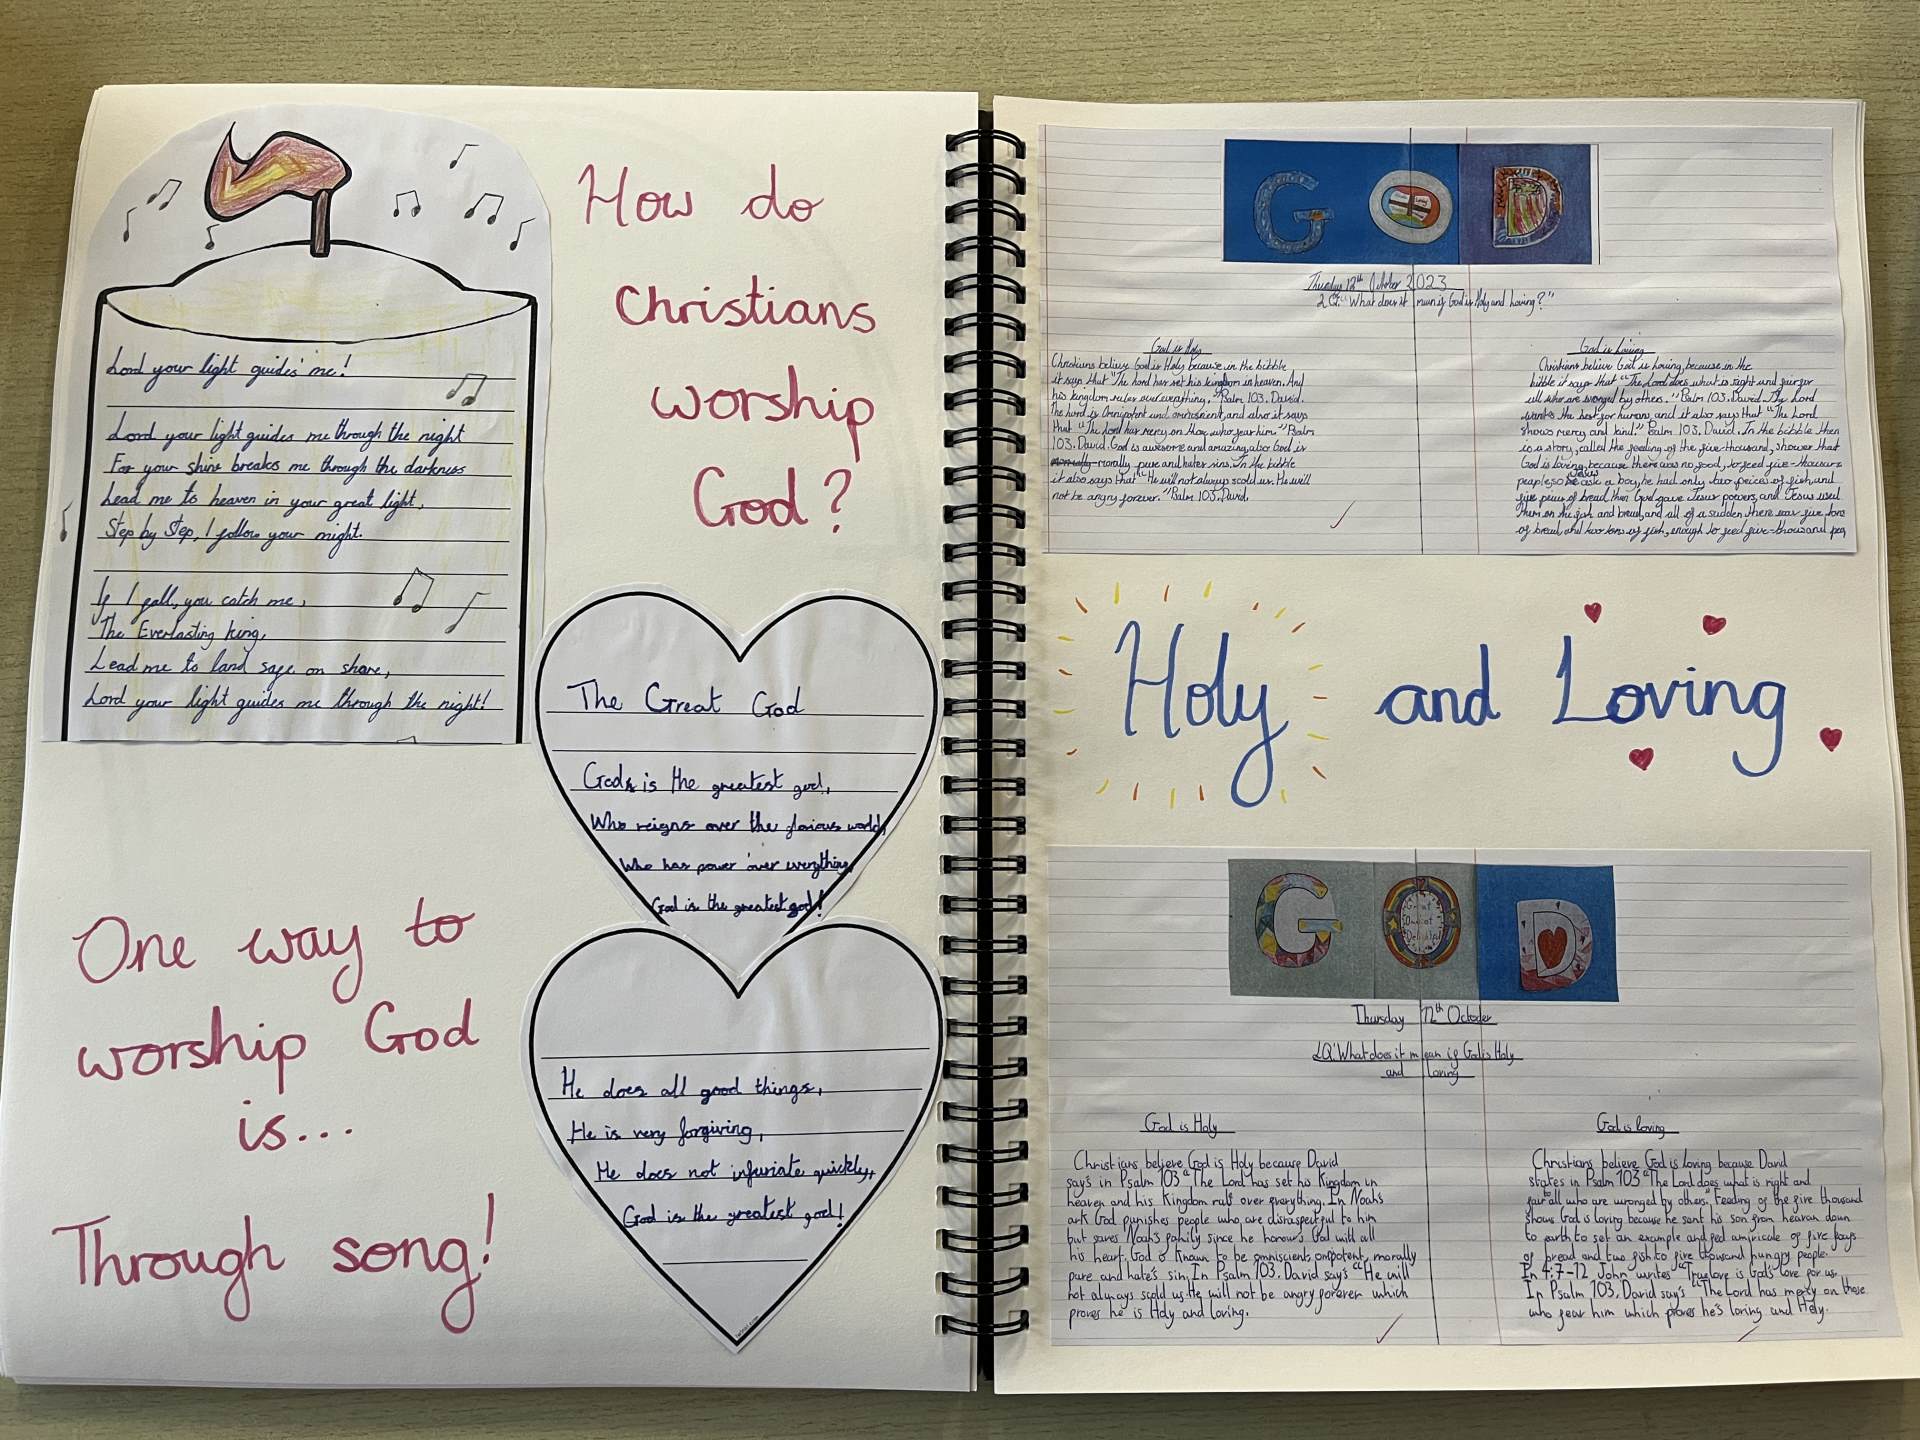 How do
Christians
worship
God?
Lord your light guides me!
Lord your light guides me through the night
For your shine breaks me through the darkness
Lead me to heaven in your great light,
Step by Step, I follow your might.
If I fall, you catch me,
The Everlasting King,
Lead me to land safe on shore,
Lord your light guides me through the night!
The Great God
God is the greatest god,
Who reigns over the glorious world,
Who has power over everything,
God is the greatest god!
He does all good things,
He is very forgiving,
He does not infuriate quickly,
God is the greatest god!
One way to
worship God
is...
Through song!
GOD
Thursday 12th October 2023
LQ: "What does it mean if God is Holy and Loving?"
God is Holy
Christians believe God is Holy because in the bibble
it says that "The Lord has set his kingdom in heaven. And
his kingdom rules over everything." Psalm 103. David.
The lord is Omnipotent and omniscient, and also it says
that "The Lord has mercy on those who fear him." Psalm
103. David. God is awesome and amazing, also God is
morally pure and hates sins. In the bibble
it also says that "He will not always scold us. He will
not be angry forever." Psalm 103. David.
God is Loving
Christians believe God is loving, because in the
bibble it says that "The Lord does what is right and fair for
all who are wronged by others." Psalm 103. David. The Lord
wants the best for humans, and it also says that "The Lord
shows mercy and kind." Psalm 103. David. In the bibble then
is a story, called the feeding of the five thousand, shows that
God is loving, because there was no food, to feed five-thousand
people, so Jesus ask a boy, he had only two peices of fish and
five pieces of bread, then God gave Jesus powers, and Jesus used
them on the fish and bread, and all of a sudden there was five tons
of bread and two tons of fish, enough to feed five-thousand peo
Holy and Loving
GOD
Great
Delightful
Thursday 12th October
LQ: What does it mean if God is Holy
and loving
God is Holy
Christians believe God is Holy because David
say's in Psalm 103 "The Lord has set his Kingdom in
heaven and his Kingdom rul's over everything. In Noah's
ark God punishes people who are disraspectful to him
but saves Noah's family since he honours God with all
his heart. God is Known to be omniscient, omnipotent, morally
pure and hate's sin. In Psalm 103. David say's "He will
not always scold us. He will not be angry forever which
proves he is Holy and loving.
God is loving
Christians believe God is loving because David
states in Psalm 103 "The Lord does what is right and
fair all who are wronged by others." Feeding of the five thousand
shows God is loving because he sent his son from heavan down
to earth to set an example and fed amiricale of five
of bread and two fish to five thousand hungry people.
In 4:7-12, John writes "True love is God's love for us.
In Psalm 103, David say's "The Lord has mercy on those
who fear him which proves he's loving and Holy.